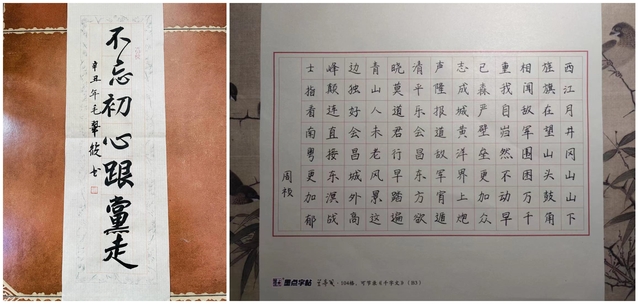 不忘初心跟黨走
辛丑年毛
书
西江月井冈山山下
旌旗在望山头鼓角
相闻敌军围困万千
重我自岿然不动早
已森严壁垒更加众
志成城黄洋界上炮
声隆报道敌军宵遁
清平乐会昌东方欲
晓莫道君行早踏遍
青山人未老风景这
边独好会昌城外高
峰颠连直接东溟战
士指看南粤更加郁
周
墨点字帖 ·104格·可节录《千字文》(B3)